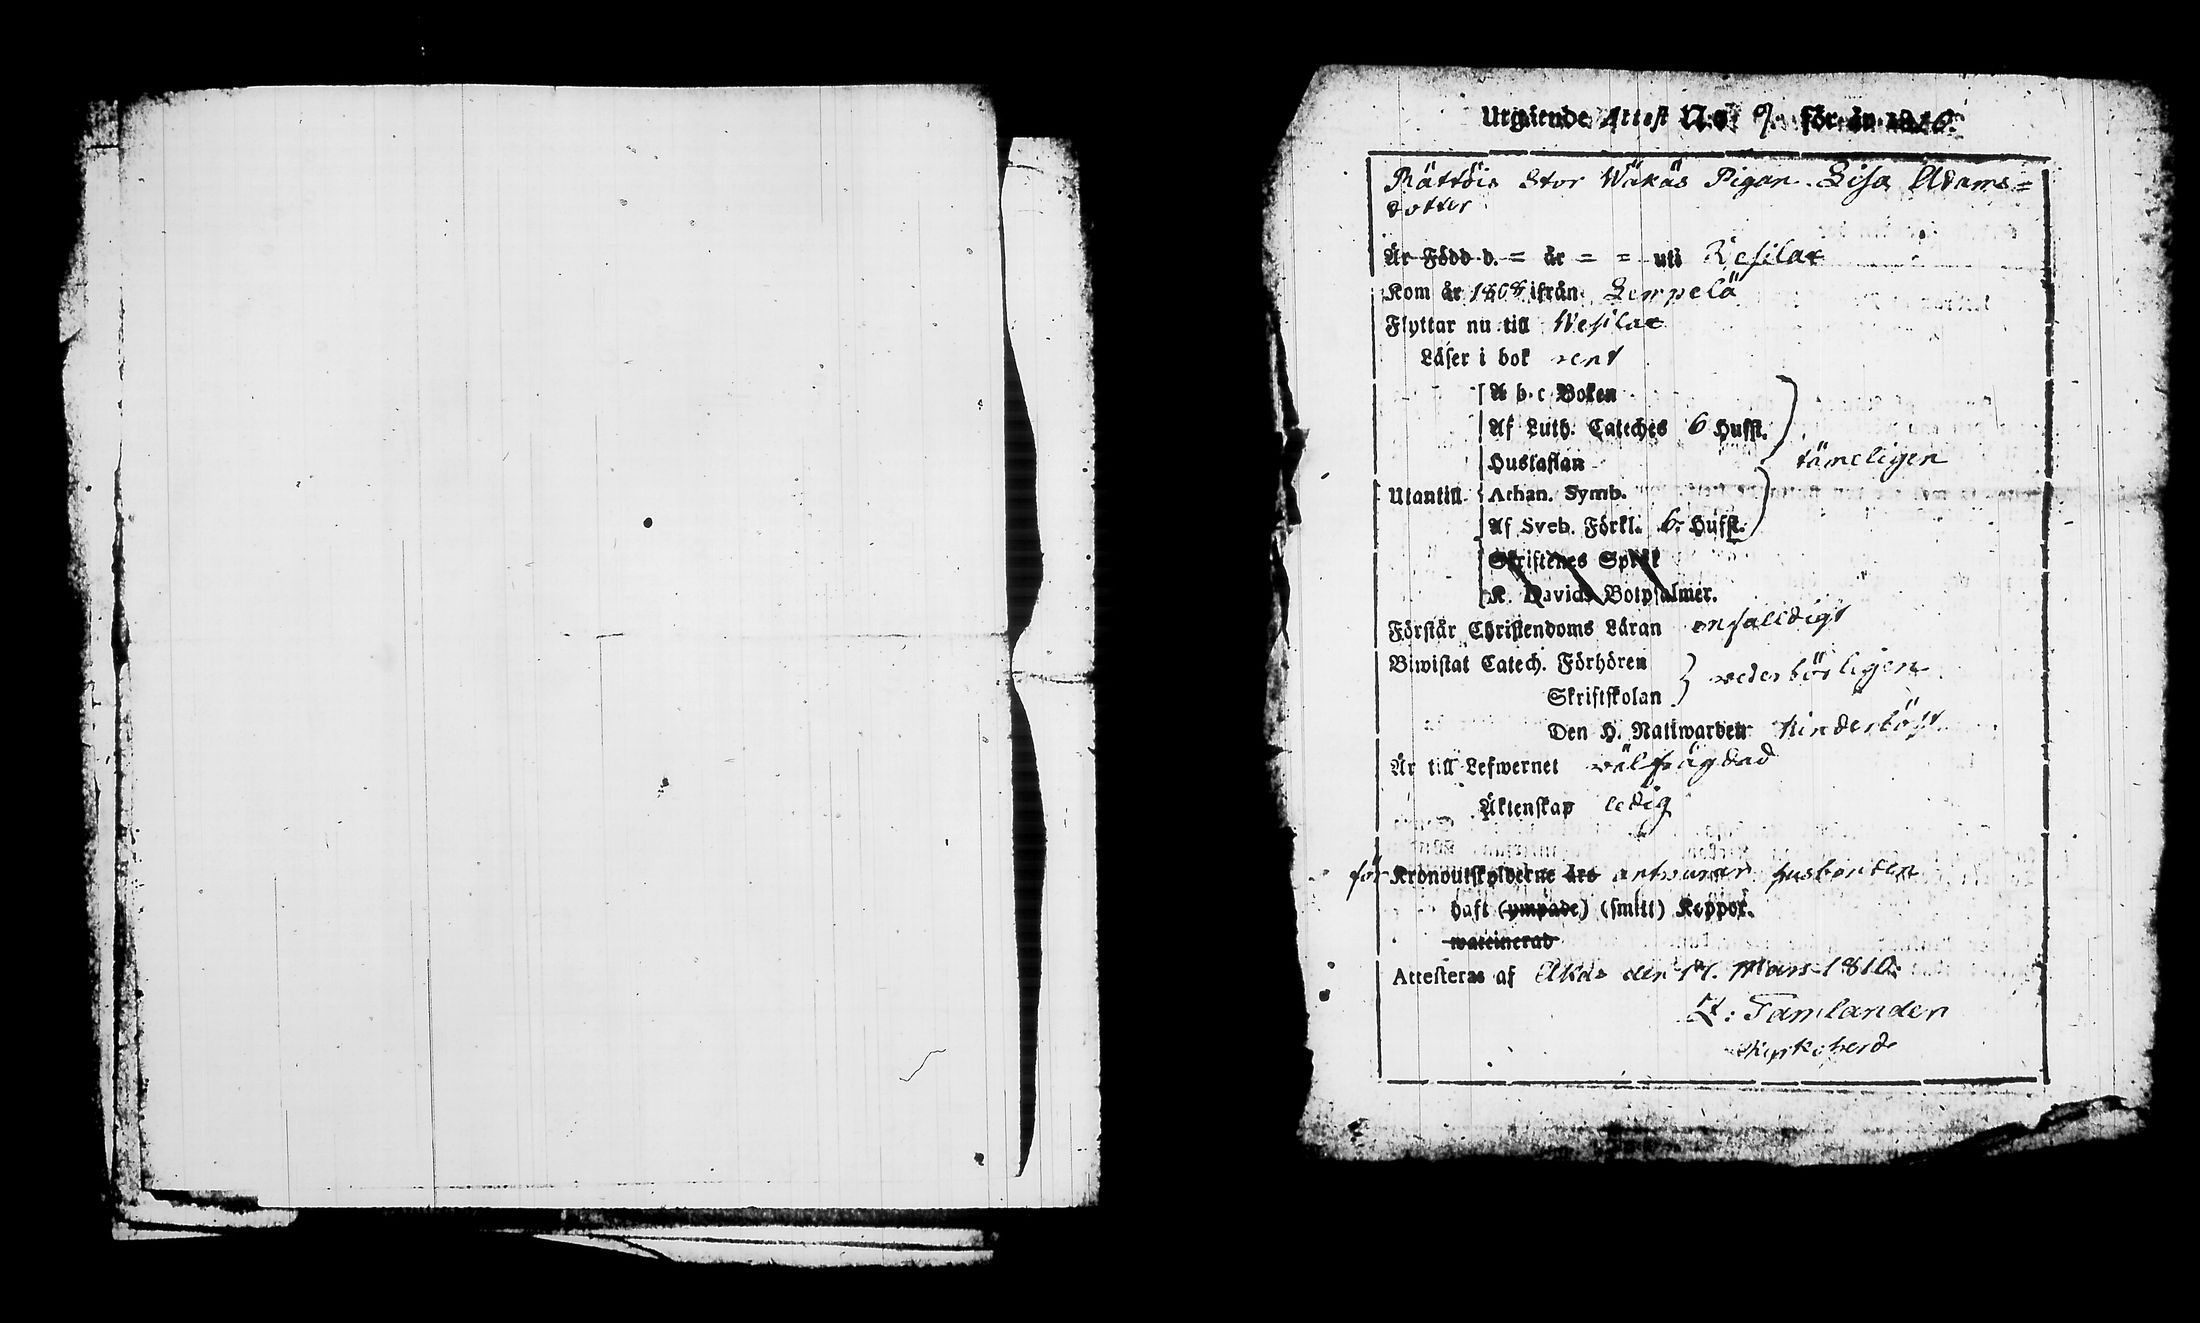 Utgående Attest N:o 9/. för år 1810.
Rättöis Stor Wäkäs Pigan Lisa Adams=
dotter
Är Född d. = år = = uti Wesilax
Kom år 1808 ifrån Lempelä
Flyttar nu till Wesilax
Läser i bok rent
A b c Boken
Af Luth. Cateches 6 Hufst.
Hustaflan tämeligen
Utantill Athan. Symb.
Af Sveb. Förkl. 6 Hufst.
Skriftenes Språk
K. Davids Botpsalmer.
Förstår Christendoms Läran enfalldigt
Biwistat Catech. Förhören
Skriftskolan vederbörligen
Den H. Nattwarden hinderlöst
Är till Lefwernet välfrägdad
Äktenskap ledig
för Kronoutskylderne åro answarar husbonden
haft (ympade) (smitt) Koppor.
waccinerad
Attesteras af Akas den 17. Mars 1810.
Z: Tamlander
Kyrkoherde